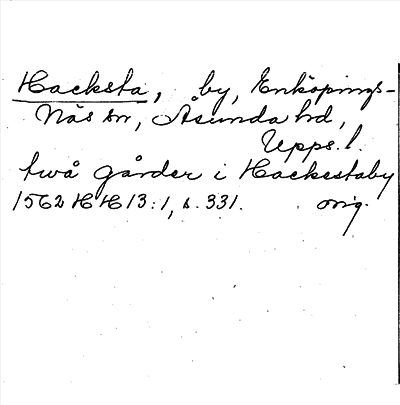 Hacksta, by, Enköpings-
Näs sn, Åsunda hd,
Upps. l.
två gårder i Hackestaby
1562 HH 13:1, s. 331. orig.